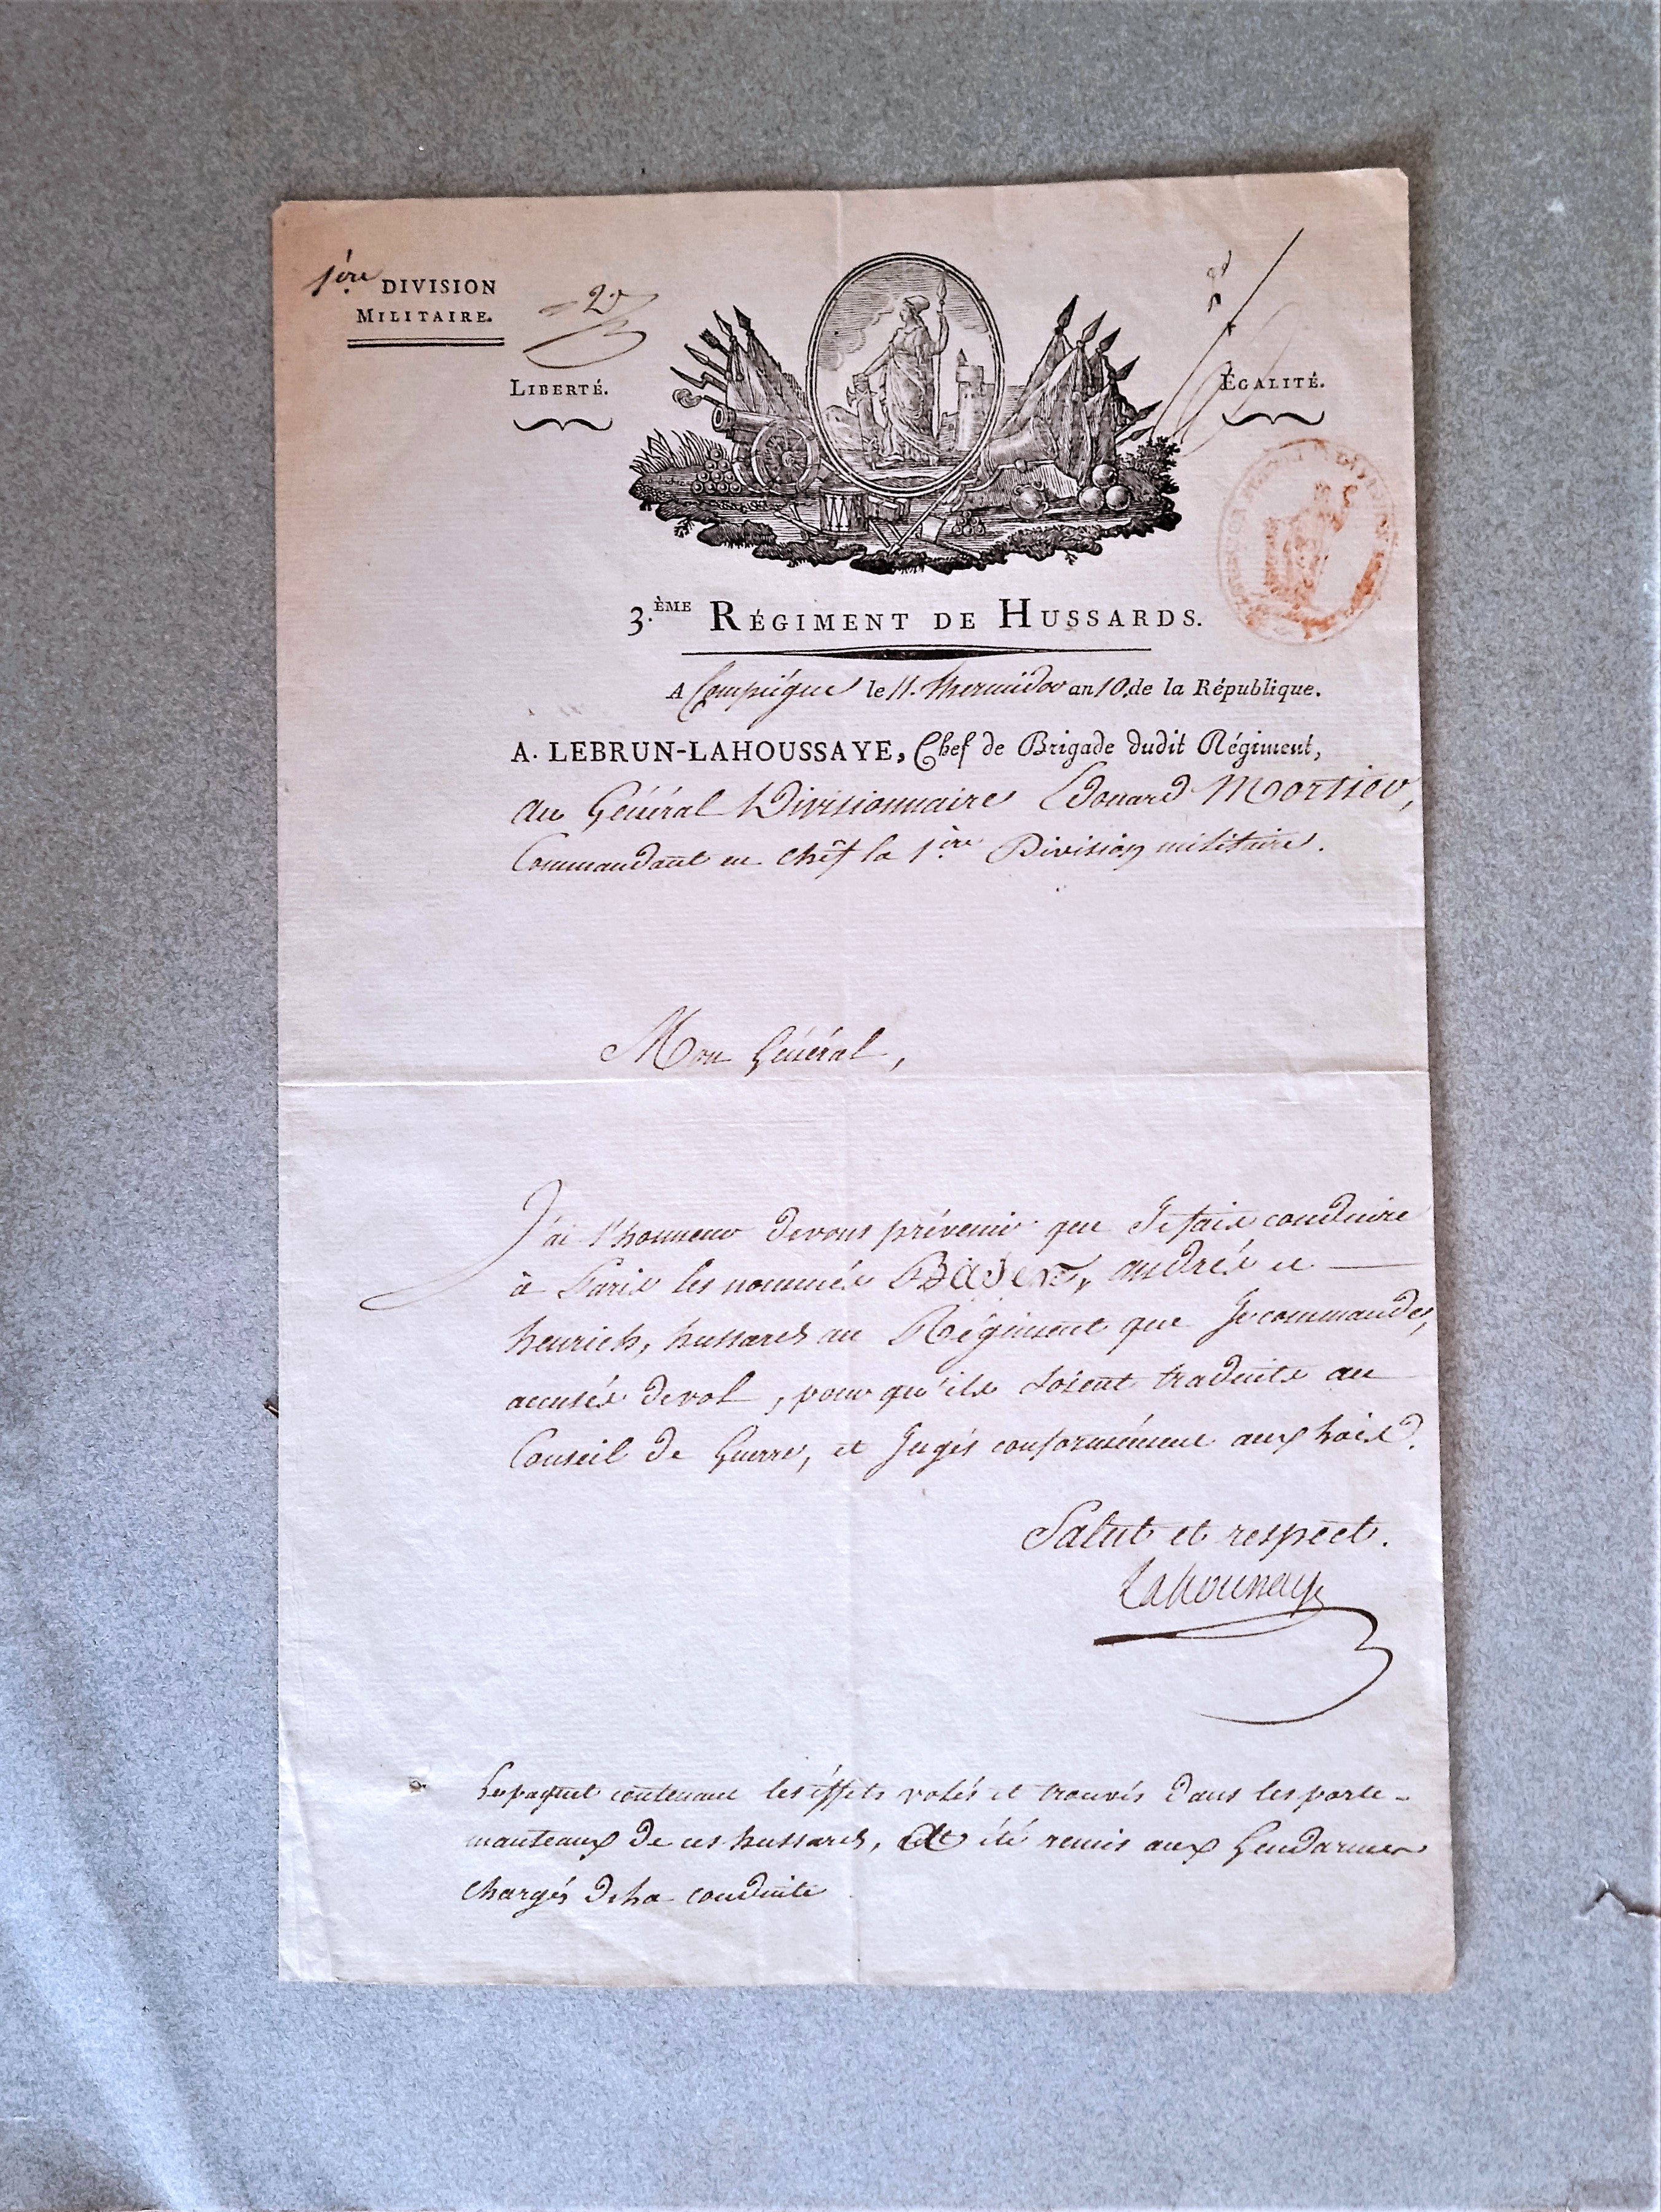 1ère DIVISION
MILITAIRE.
LIBERTÉ.
ÉGALITÉ.
3.ÈME RÉGIMENT DE HUSSARDS.
A Compiégne le 11. thermidor an 10. de la République.
A. LEBRUN-LAHOUSSAYE, Chef de Brigade dudit Régiment,
Au Général Divisionnaire Edouard Mortier,
Commandant en chêf la 1ère Division militaire.
Mon Général,
J'ai l'honneur de vous prévenir que Je fais conduire
à Paris les nommés andrés et
henrich, hussards au Régiment que Je commande,
accusés de vol, pour qu'ils soient traduits au
Conseil de Guerre, et Jugés conformément aux Loix.
Salut et respect.
Lahoussaye
Le paquet contenant les éffets volés et trouvés dans les porte-
manteaux de ces hussards, été remis aux Gendarmes
chargés de La conduite